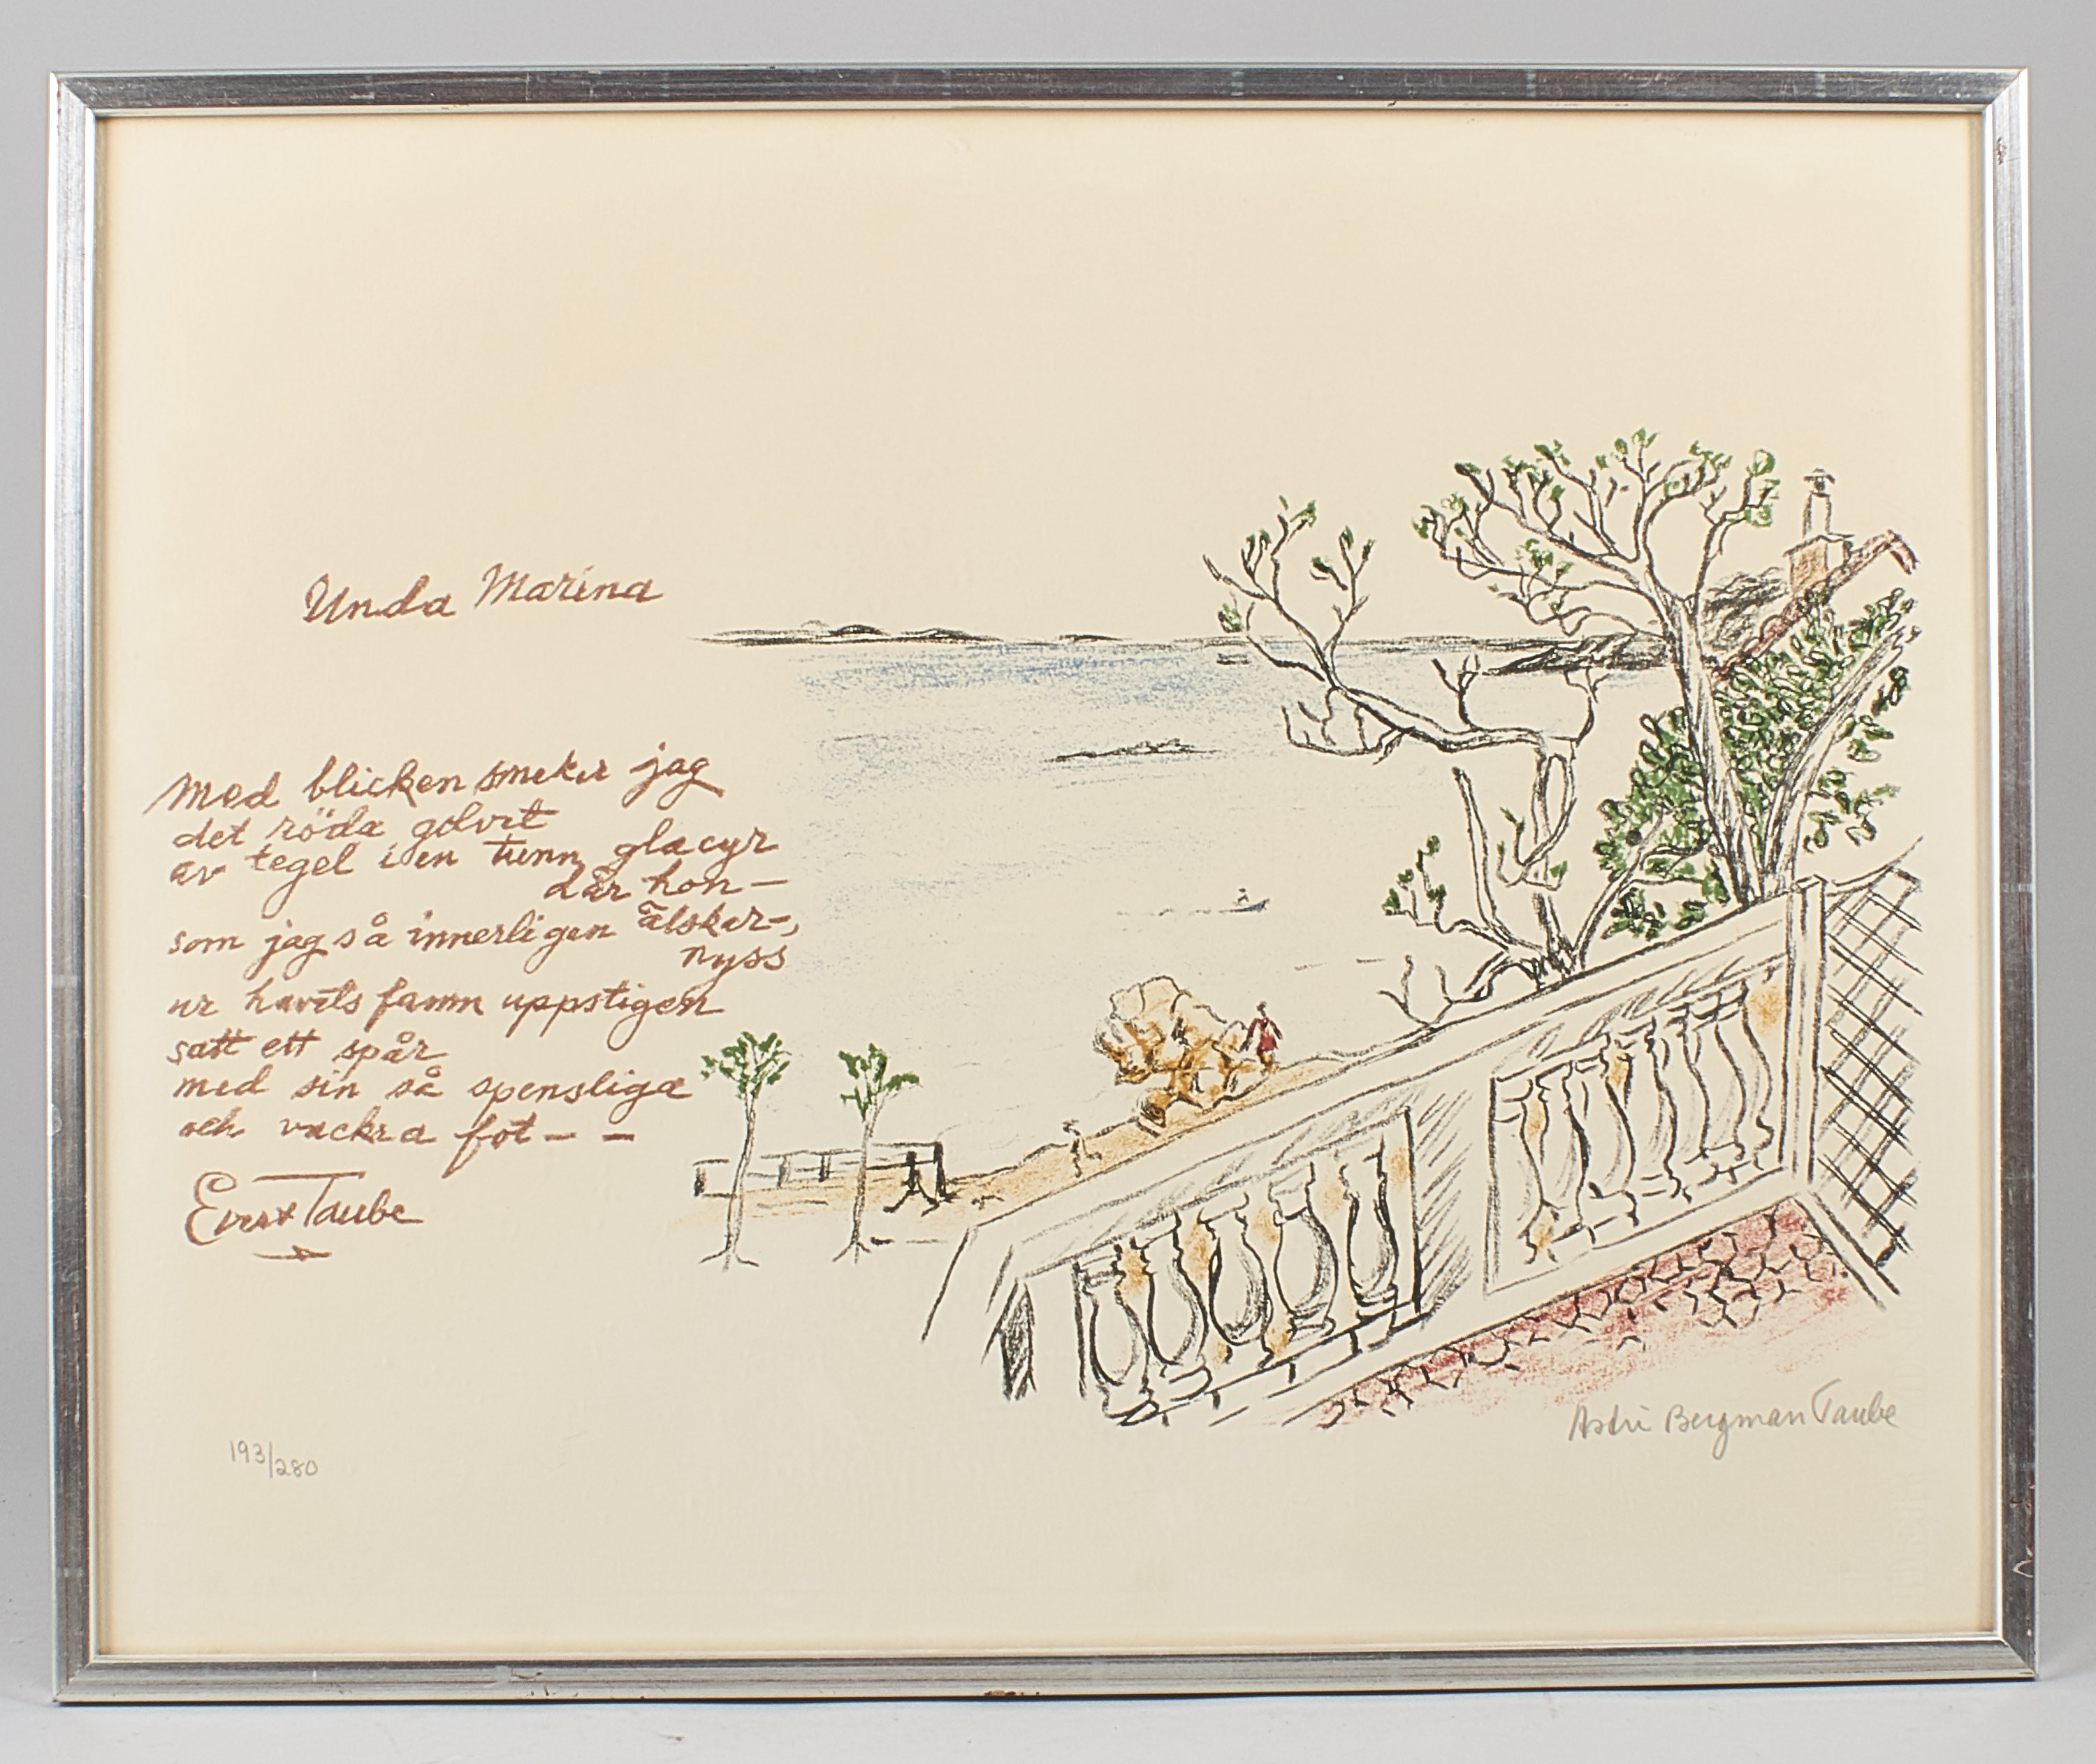 Unda Marina
Med blicken smeker jag
det röda golvet
av tegel i en tunn glacyr
där hon —
som jag så innerligen älskar —,
nyss
ur havets famn uppstigen
satt ett spår
med sin så spensliga
och vackra fot — —
Evert Taube
193/280
Astri Bergman Taube